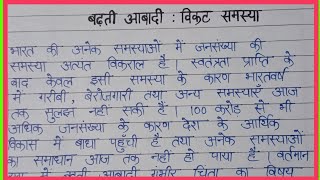 बढ़ती आबादी : विकट समस्या
भारत की अनेक समस्याओं में जनसंख्या की
समस्या अत्यत विकराल है । स्वतंत्रता प्राप्ति के
बाद केवल इसी समस्या के कारण भारतवर्ष
में गरीबी, बेरोजगारी तथा अन्य समस्याएँ आज
तक सुलझ नहीं सकी हैं । 100 करोड़ से भी
अधिक जनसंख्या के कारण देश के आर्थिक
विकास में बाधा पहुँची है तथा अनेक समस्याओं
का समाधान आज तक नहीं हो पाया है । वर्तमान
में आबादी गंभीर चिंता का विषय